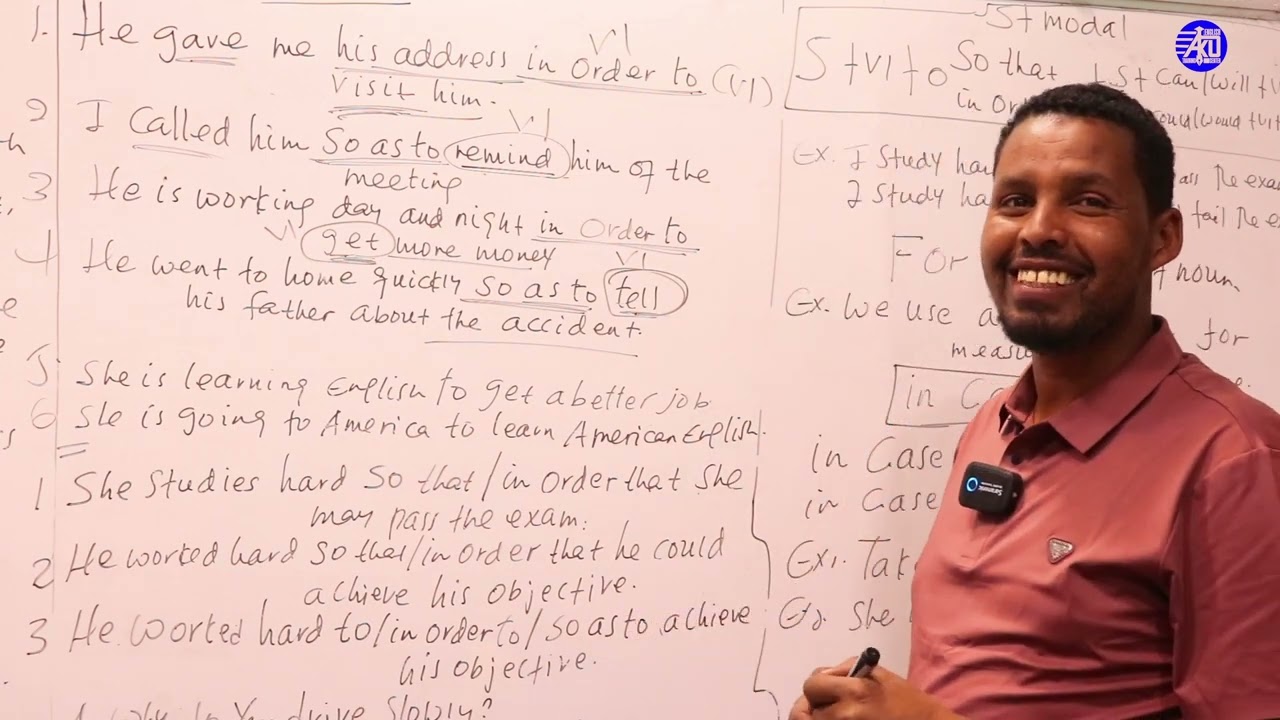 1. He gave me his address in order to (V1)
V1
visit him.
2 I called him so as to remind him of the
V1
meeting
3 He is working day and night in order to
V1 get more money
4 He went to home quickly so as to tell
V1
his father about the accident.
5 She is learning English to get a better job
6 She is going to America to learn American English.
1 She studies hard so that/in order that she
may pass the exam.
2 He worked hard so that/in order that he could
achieve his objective.
3 He worked hard to/in order to/so as to achieve
his objective.
drive slowly?
S+ modal
S+V1+o So that +S+ can/will +V
in or could/would +V1
Ex. I study har pass the exa
I study ha fail the e
For + noun.
Ex. We use a for
measu
in Ca
in Case
in Case
Ex1. Tak
Ex2. She
ENGLISH
AKU
Saramonic